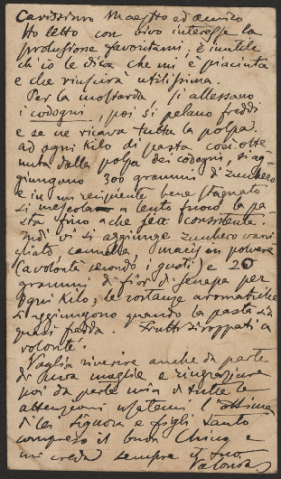 Carissimo Maestro ed amico
Ho letto con vivo interesse la
prolusione favoritami, è inutile
ch'io le dica che mi è piaciuta
e che riuscirà utilissima.
Per la mostarda si allessano
i codogni, poi si pelano freddi
e se ne ricava tutta la polpa.
ad ogni Kilo di pasta così otte
nuta dalla polpa dei codogni, si ag
giungono 300 grammi di zucchero
e in un recipiente bene stagnato
si mescola a lento fuoco la pa
sta fino a che sia consistente.
Indi vi si aggiunge zucchero vani
gliato, cannella, macis in polvere
(a volontà secondo i gusti) e 20
grammi di fior di senapa per
ogni Kilo; le sostanze aromatiche
si aggiungono quando la pasta sia
quasi fredda. Frutti siroppati a
volontà.
Voglia riverire anche da parte
di mia moglie e ringraziare
poi da parte mia di tutte le
attenzioni usatemi l'ottima
di lei Signora e figli tanto
compreso il buon Chino e
mi creda sempre il suo